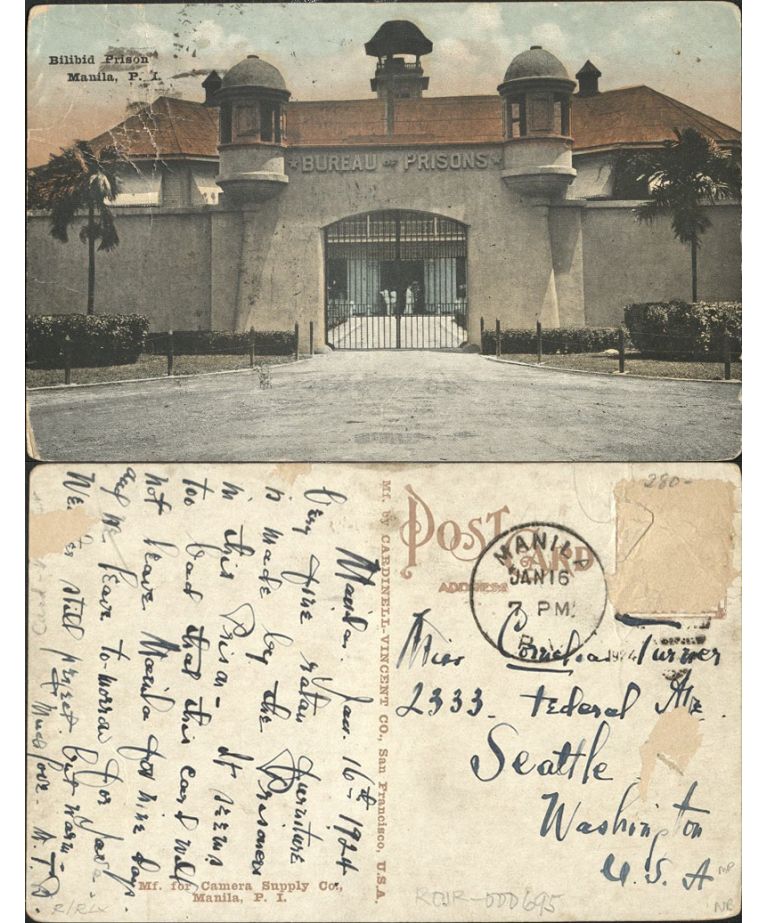 Bilibid Prison
Manila, P. I.
BUREAU OF PRISONS
Manila. Jan. 16th - 1924
Very fine ratan furniture
is made by the Prisoners
in this Prison - It seems
too bad that this card will
not leave Manila for nine days.
and we leave to-morrow for Java.
Weather still perfect. but warm -
Much love. M. T.
Mf. by CARDINELL-VINCENT CO., San Francisco, U.S.A.
Mf. for Camera Supply Co.,
Manila, P. I.
POST CARD
ADDRESS
280-
MANILA
JAN 16
7 PM
1924
Miss Cornelia Turner
2333. Federal Ave.
Seattle
Washington
U. S. A
ROUR-000695